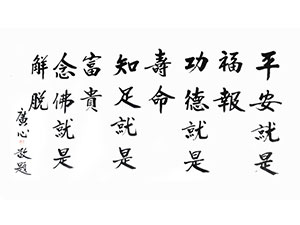 平安就是
福報
功德就是
壽命
知足就是
富貴
念佛就是
解脫
廣心敬題